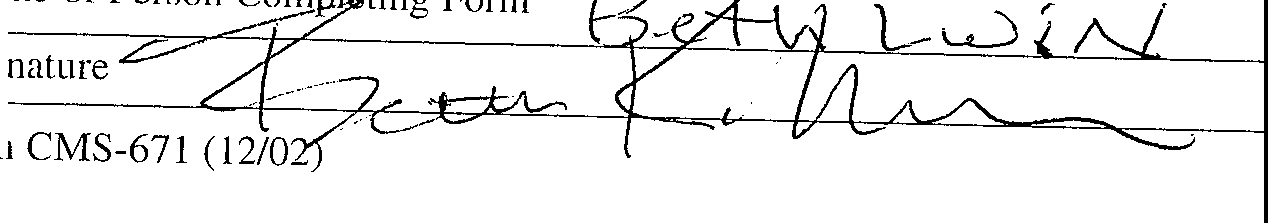 of Person Completing Form Beth Lwin
nature
CMS-671 (12/02)